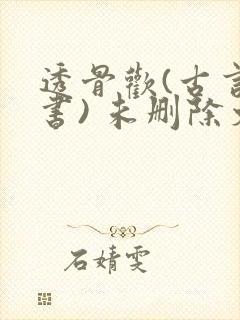 透骨歡(古言
書)未刪除
石婧雯